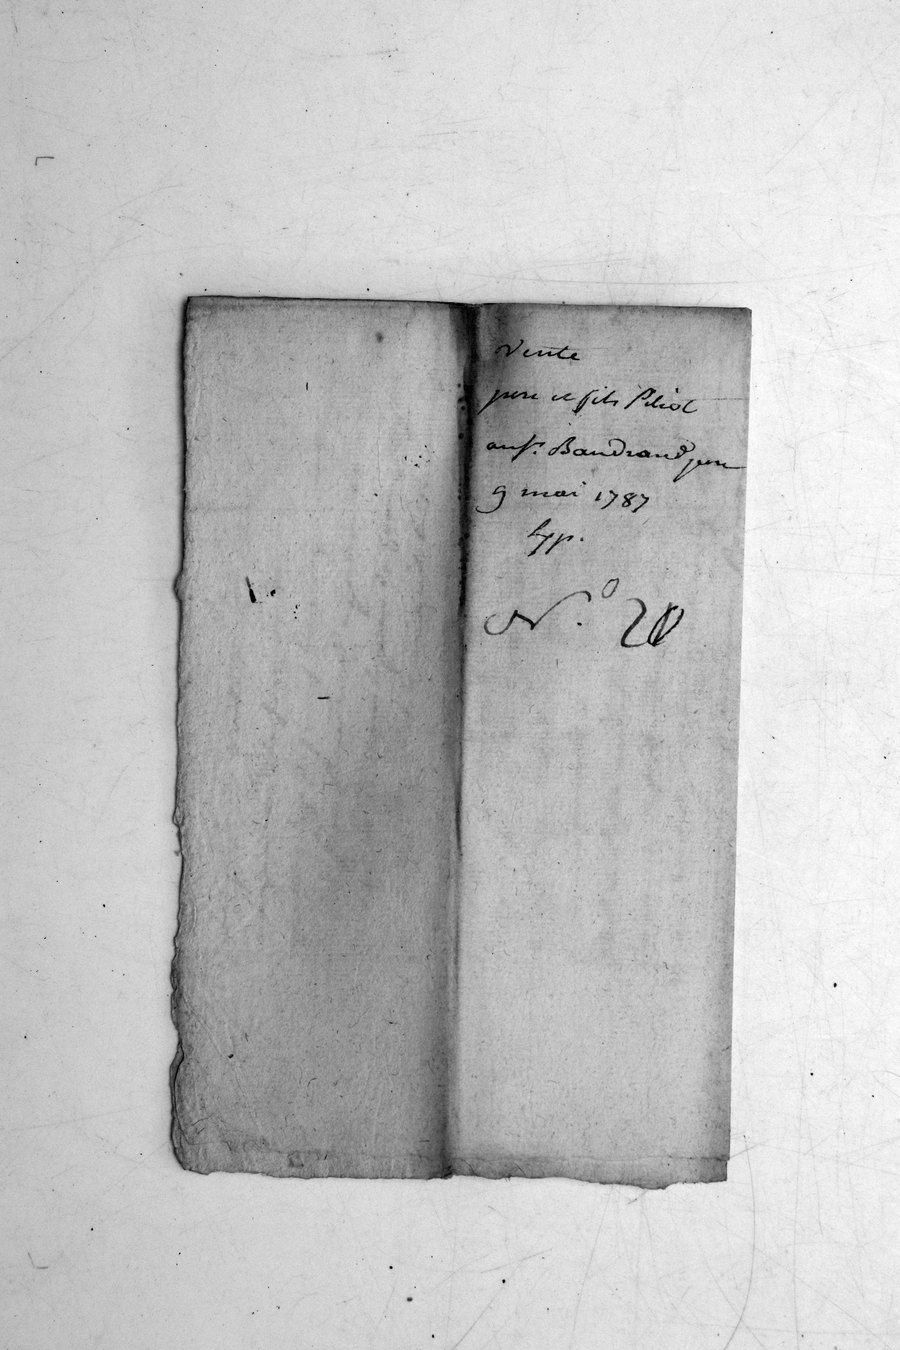 Vente
pere et fils Pikiot
au Sr. Baudrand pere
9 mai 1787
hyp.
N.º 20